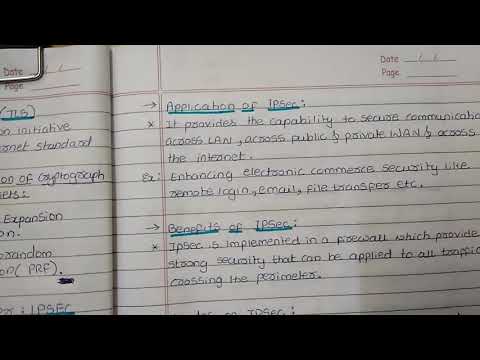 Date / /
Page
(TLS)
on initiative
ernet standard
on of Cryptograph
Expansion
on.
random
on (PRF).
: IPSEC
Date / /
Page
→ Application of IPSec:
* It provides the capability to secure communicatio
across LAN, across public & private WAN & across
the internet.
Ex: Enhancing electronic commerce security like
remote login, email, file transfer etc.
→ Benefits of IPSec:
* IpSec is implemented in a firewall which provide
strong security that can be applied to all traffic
crossing the perimeter.
on IPSec: